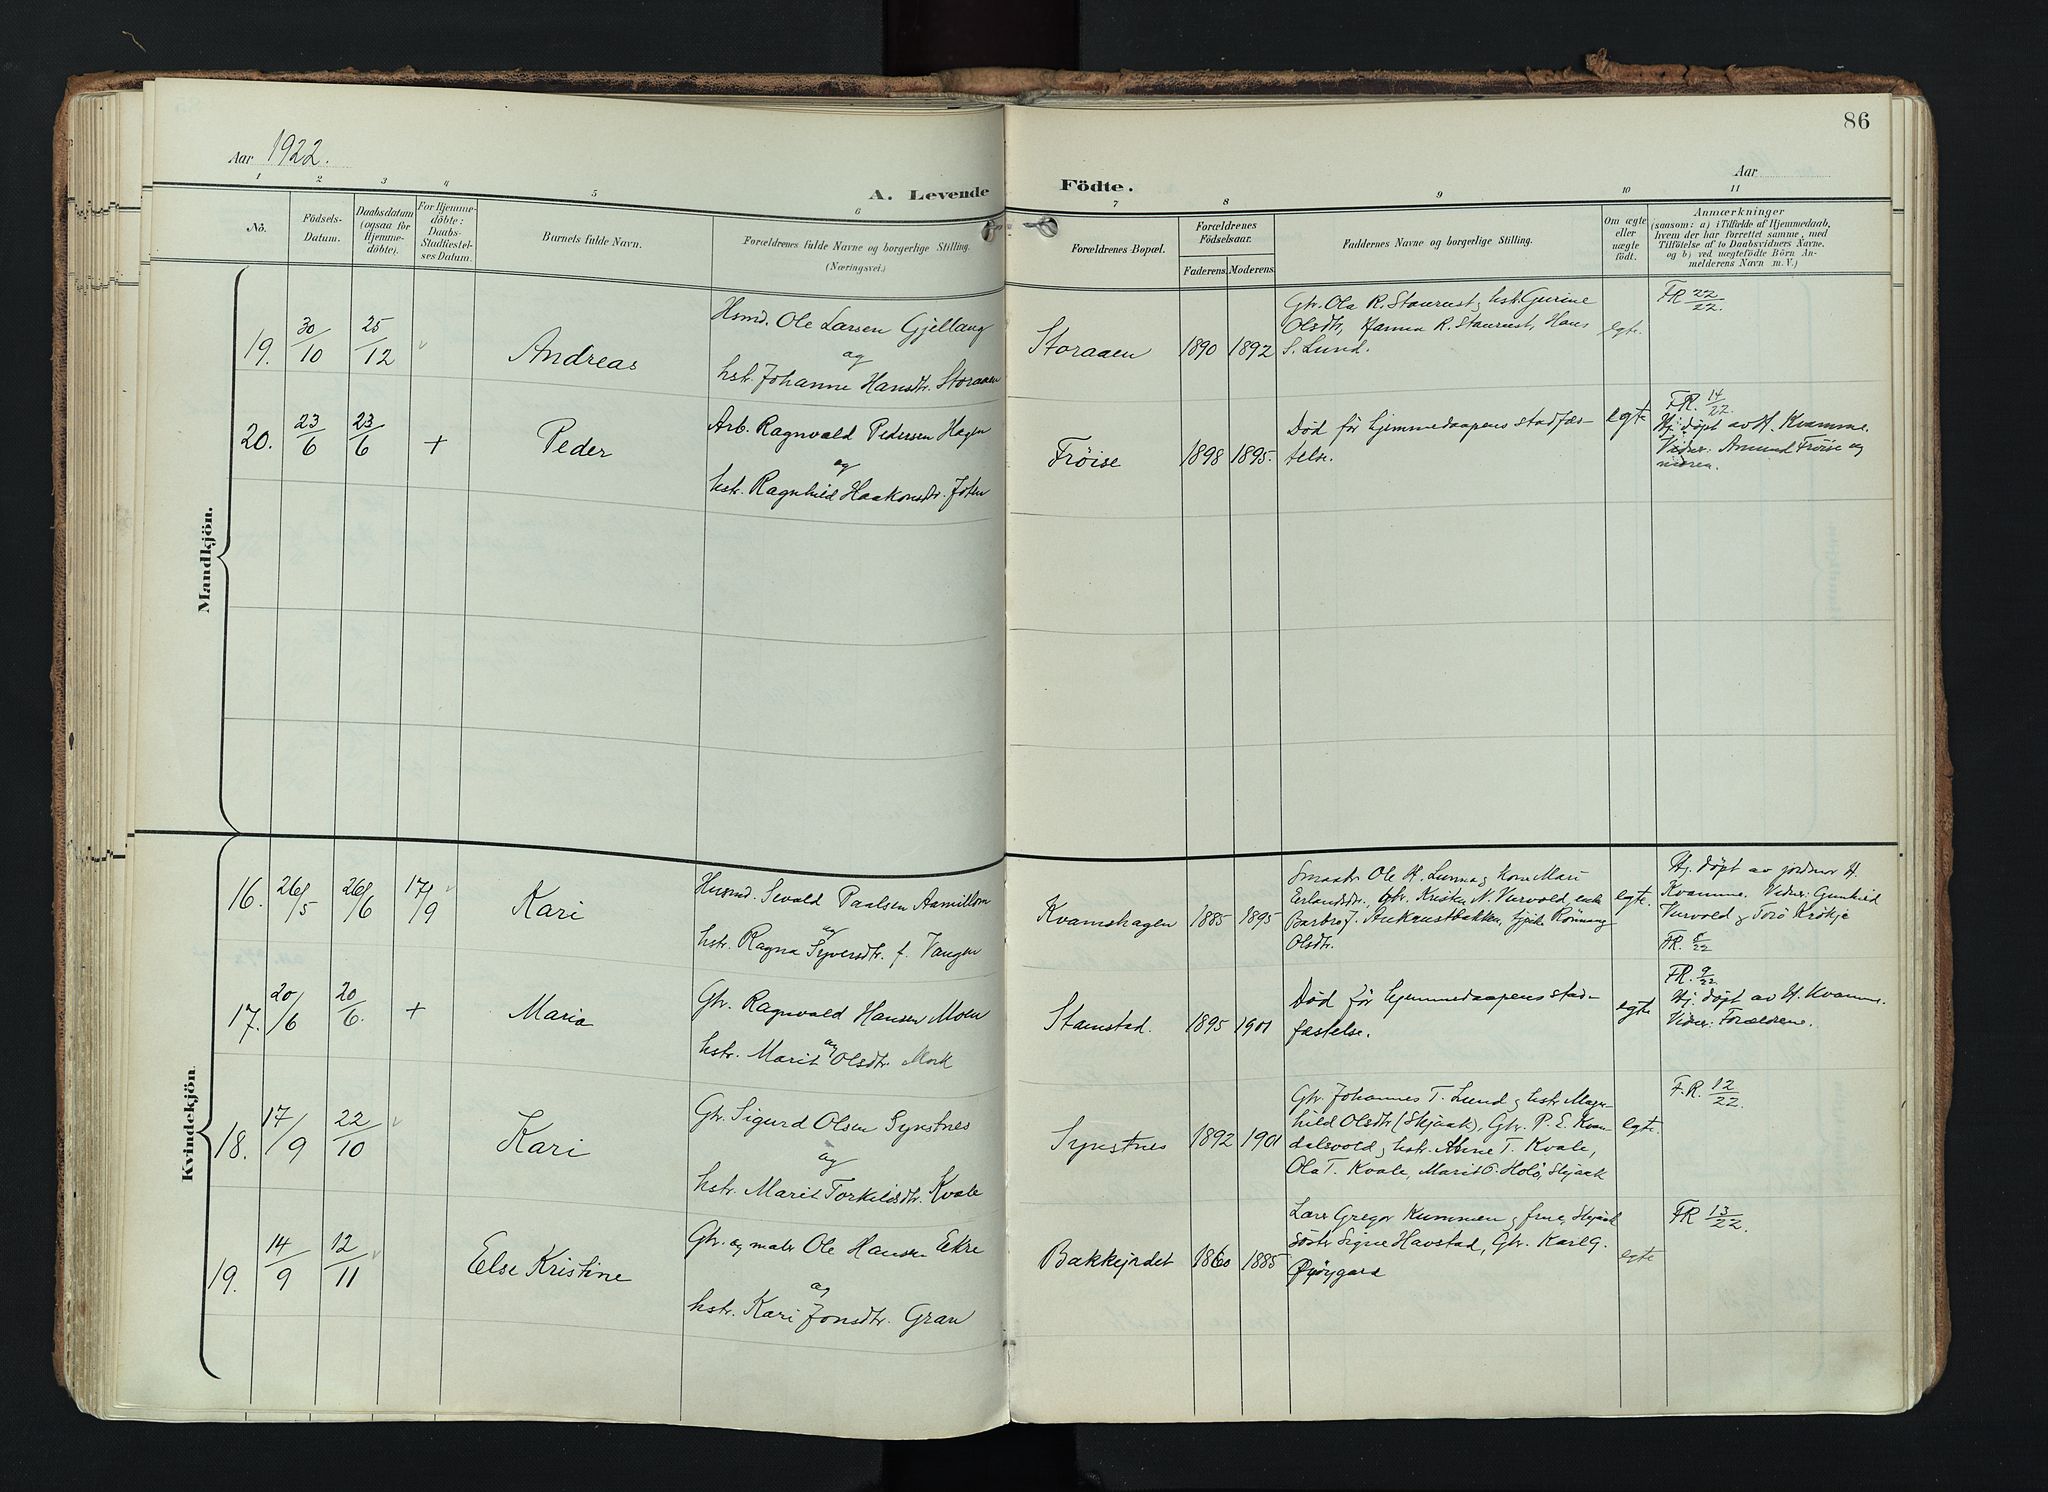 Aar 1922.
86
Aar
A. Levende Födte.
1 2 3 4 5 6 7 8 9 10 11
No.
Födsels-
Datum.
Daabsdatum
(ogsaa for
Hjemme-
döbte).
For Hjemme-
döbte:
Daabs-
Stadfæstel-
ses Datum.
Barnets fulde Navn.
Forældrenes fulde Navne og borgerlige Stilling.
(Næringsvei.)
Forældrenes Bopæl.
Forældrenes
Födselsaar.
Faderens. Moderens.
Faddernes Navne og borgerlige Stilling.
Om ægte
eller
uægte
født.
Anmærkninger
(saasom: a) i Tilfælde af Hjemmedaab,
hvem der har forrettet samme, med
Tilföielse af to Daabsvidners Navne.
og b) ved uægtefödte Börn An-
melderens Navn m. V.)
Mandkjön.
19. 30/10 25/12 Andreas
Hsmd. Ole Larsen Gjellang
og
hstr. Johanne Hansdtr. Storaaen
Storaaen 1890 1892
Gbr. Ola R. Staurust, hst. Gurine
Olsdtr, Hanna R. Staurust, Hans
S. Lund.
egte.
FR 22/22.
20. 23/6 23/6 + Peder
Arb. Ragnvald Pedersen Hagen
og
hstr. Ragnhild Haakonsdtr. Joten
Frøise 1898 1895.
Død før hjemmedaapens stadfæs-
telse.
egte
FR. 14/22.
Hj. døpt av H. Kvamme.
Vidner: Amund Frøise og
moren.
Kvindekjön.
16. 26/5 26/6 17/9 Kari
Husmd. Sevald Paalsen Aamillom
og
hstr. Ragna Syversdtr. f. Vangen
Kvamshagen 1885 1895
Smaabr. Ole H. Lunna og kone Mari
Erlandsdtr., Gbr. Kristen N. Vurvold, enke
Barbro J. Aukrustbakken, Rønnaug
Olsdtr.
egte.
Hj. døpt av jordmor H.
Kvamme. Vidner: Gunhild
Vurvold og Toro Krøkje
FR. 8/22
17. 20/6 20/6. + Maria
Gbr. Ragnvald Hansen Moen
og
hstr. Marit Olsdtr. Mork
Stamstad. 1895 1901
Død før hjemmedaapens stad-
fæstelse.
egte
FR. 9/22
Hj. døpt av H. Kvamme.
Vidner: Forældrene.
18. 17/9 22/10 Kari
Gbr. Sigurd Olsen Synstnes
og
hstr. Marit Torkildsdtr. Kvale
Synstnes 1892 1901
Gbr. Johannes T. Lund og hstr Magn-
hild Olsdtr (Skjaak), Gbr. P. E. Kvan-
dalsvold og hstr. Anne T. Kvale,
Ola T. Kvale, Marit O. Holø, Skjaak
egte.
F.R. 12/22.
19. 14/9 12/11 Else Kristine
Gbr. og maler Ole Hansen Ekre
og
hstr. Kari Jonsdtr. Gran
Bakkejordet 1860 1885
Lærer Gregor Kummen og frue, Skjaak
søster Signe Havstad, Gbr. Karl G.
Øyøygard
egte
FR 13/22.